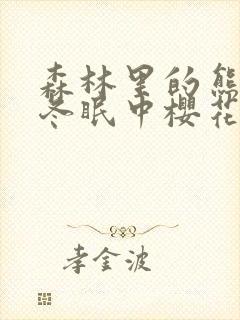 森林里的熊
冬眠中樱花
李金波